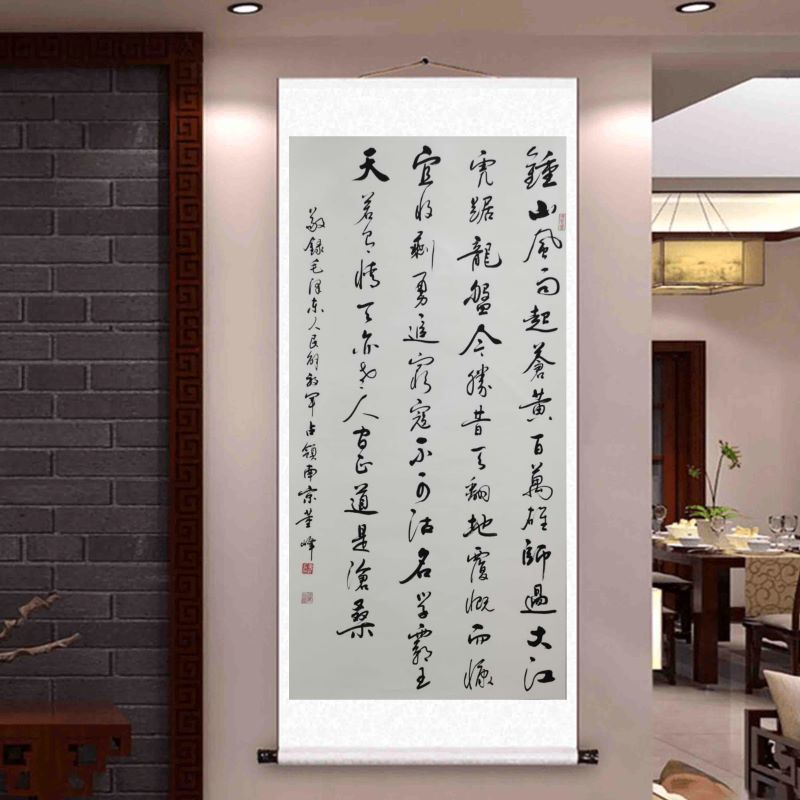 鍾山風雨起蒼黃百萬雄師過大江
虎踞龍盤今勝昔天翻地覆慨而慷
宜将剩勇追窮寇不可沽名学霸王
天若有情天亦老人间正道是滄桑
敬錄毛泽东人民解放軍占領南京董峰